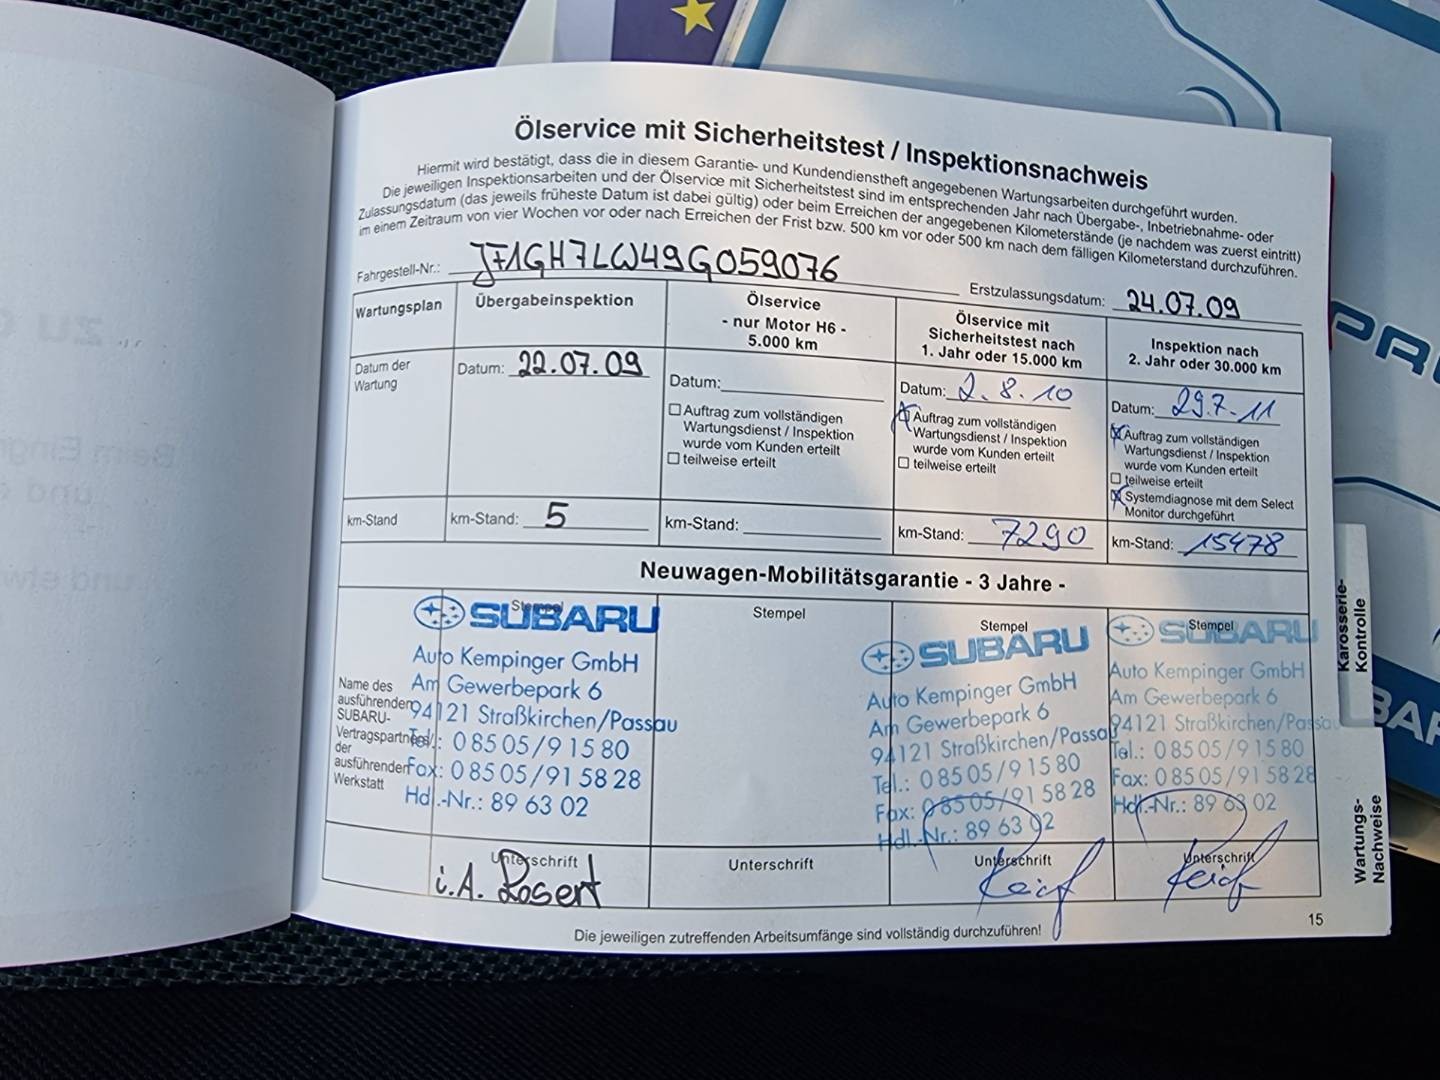 Ölservice mit Sicherheitstest / Inspektionsnachweis
Hiermit wird bestätigt, dass die in diesem Garantie- und Kundendienstheft angegebenen Wartungsarbeiten durchgeführt wurden.
Die jeweiligen Inspektionsarbeiten und der Ölservice mit Sicherheitstest sind im entsprechenden Jahr nach Übergabe-, Inbetriebnahme- oder
Zulassungsdatum (das jeweils früheste Datum ist dabei gültig) oder beim Erreichen der angegebenen Kilometerstände (je nachdem was zuerst eintritt)
im einem Zeitraum von vier Wochen vor oder nach Erreichen der Frist bzw. 500 km vor oder 500 km nach dem fälligen Kilometerstand durchzuführen.
Fahrgestell-Nr.: JF1GH7LW49G059076
Erstzulassungsdatum: 24.07.09
Wartungsplan
Übergabeinspektion
Ölservice
- nur Motor H6 -
5.000 km
Ölservice mit
Sicherheitstest nach
1. Jahr oder 15.000 km
Inspektion nach
2. Jahr oder 30.000 km
Datum der
Wartung
Datum: 22.07.09
Datum:
Auftrag zum vollständigen
Wartungsdienst / Inspektion
wurde vom Kunden erteilt
teilweise erteilt
Datum: 2.8.10
Auftrag zum vollständigen
Wartungsdienst / Inspektion
wurde vom Kunden erteilt
teilweise erteilt
Datum: 29.7.11
Auftrag zum vollständigen
Wartungsdienst / Inspektion
wurde vom Kunden erteilt
teilweise erteilt
Systemdiagnose mit dem Select
Monitor durchgeführt
km-Stand
km-Stand: 5
km-Stand:
km-Stand: 7290
km-Stand: 15478
Neuwagen-Mobilitätsgarantie - 3 Jahre -
Name des
ausführenden
SUBARU-
Vertragspartners/
der
ausführenden
Werkstatt
Stempel
SUBARU
Auto Kempinger GmbH
Am Gewerbepark 6
94121 Straßkirchen/Passau
Tel.: 0 85 05/9 15 80
Fax: 0 85 05/91 58 28
Hdl.-Nr.: 89 63 02
Stempel
Stempel
SUBARU
Auto Kempinger GmbH
Am Gewerbepark 6
94121 Straßkirchen/Passau
Tel.: 0 85 05/9 15 80
Fax: 0 85 05/91 58 28
Hdl.-Nr.: 89 63 02
Stempel
SUBARU
Auto Kempinger GmbH
Am Gewerbepark 6
94121 Straßkirchen/Passau
Tel.: 0 85 05/9 15 80
Fax: 0 85 05/91 58 28
Hdl.-Nr.: 89 63 02
Unterschrift
i.A. Rosert
Unterschrift
Unterschrift
Unterschrift
Die jeweiligen zutreffenden Arbeitsumfänge sind vollständig durchzuführen!
15
Karosserie-
Kontrolle
Wartungs-
Nachweise